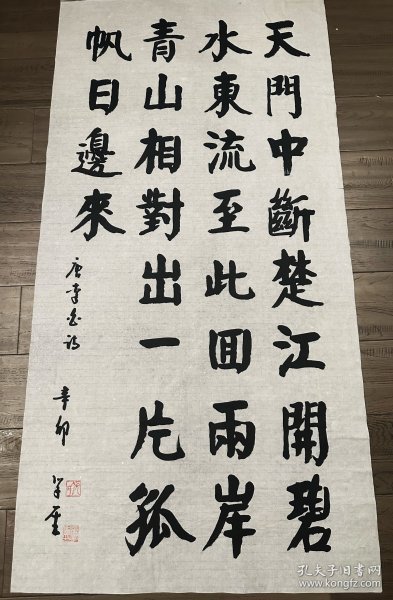 天門中斷楚江開碧
水東流至此回兩岸
青山相對出一片孤
帆日邊來
唐李白詩
辛卯
孔夫子旧书网
www.kongfz.com